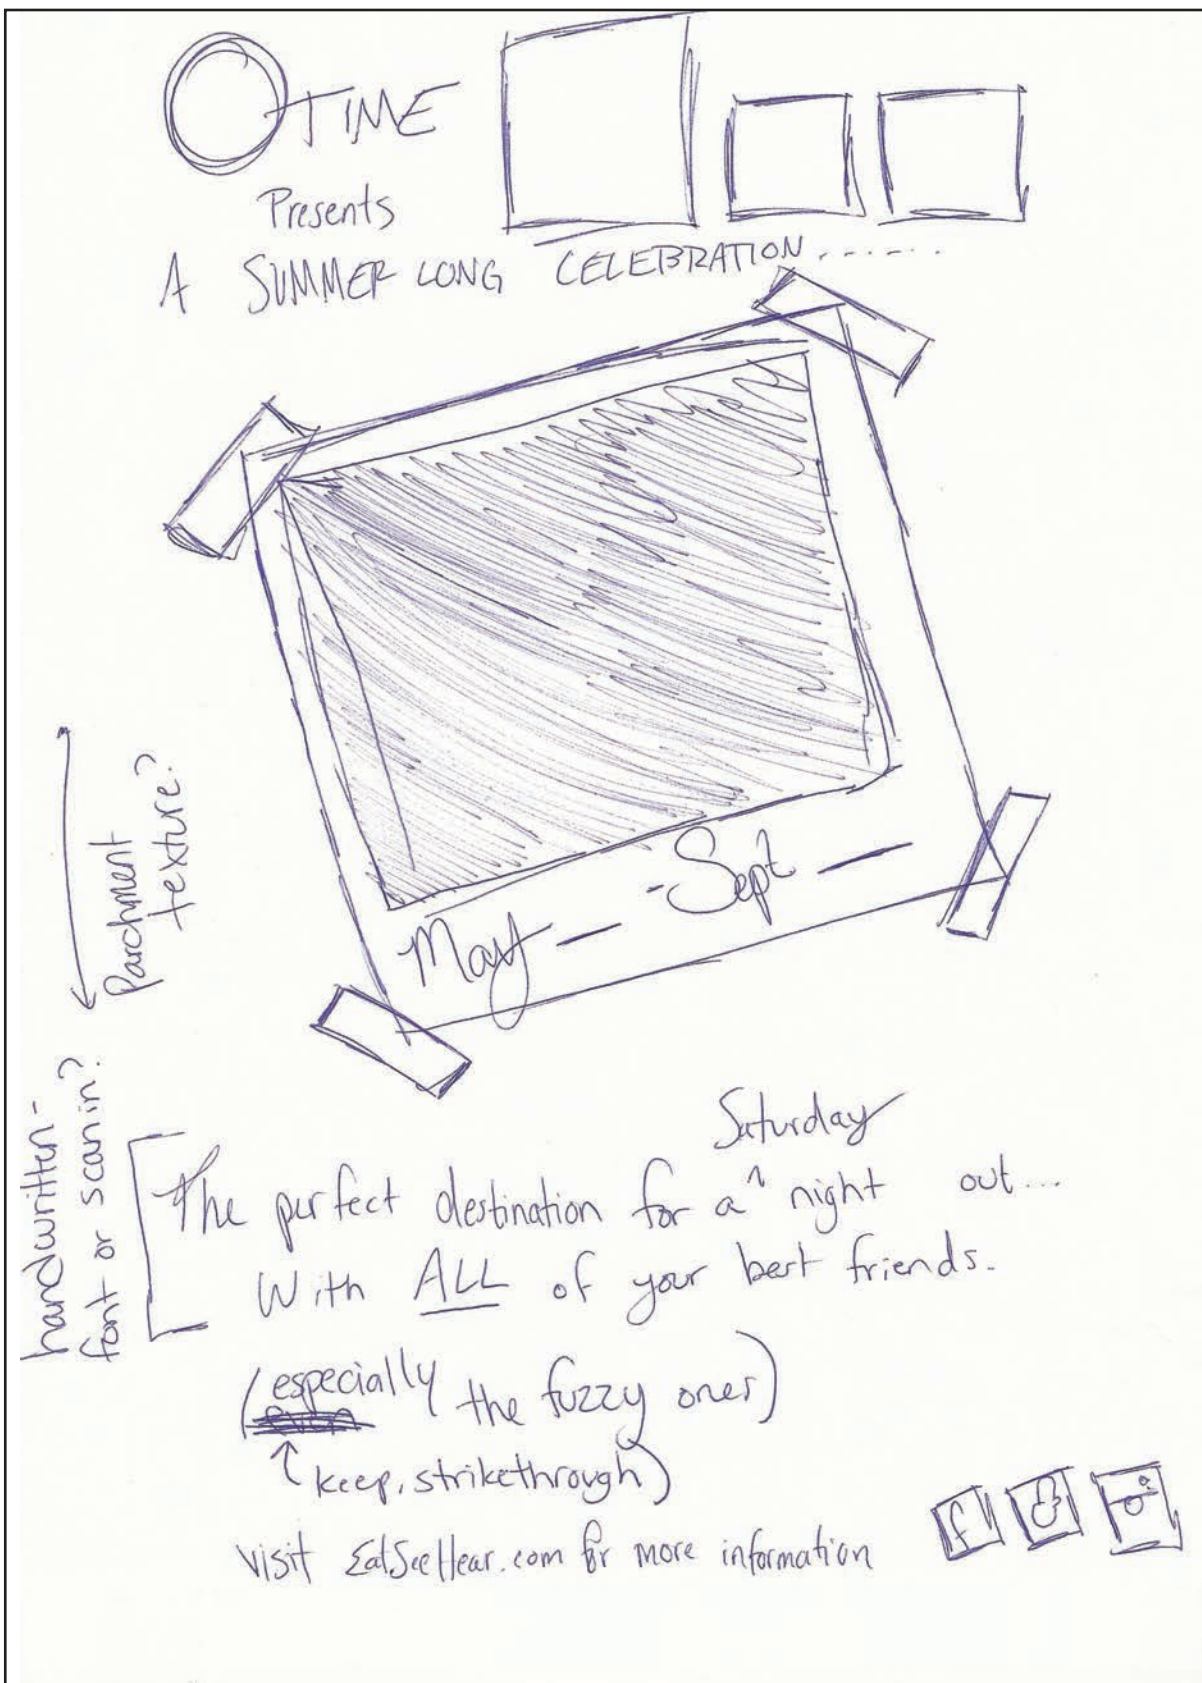 TIME
Presents
A SUMMER LONG CELEBRATION.......
May — -Sept —
Parchment
texture?
handwritten-
font or scan in?
Saturday
The perfect destination for a ^ night out...
With ALL of your best friends.
(especially the fuzzy ones)
even
↑ keep, strikethrough)
visit EatSeeHear.com for more information
f